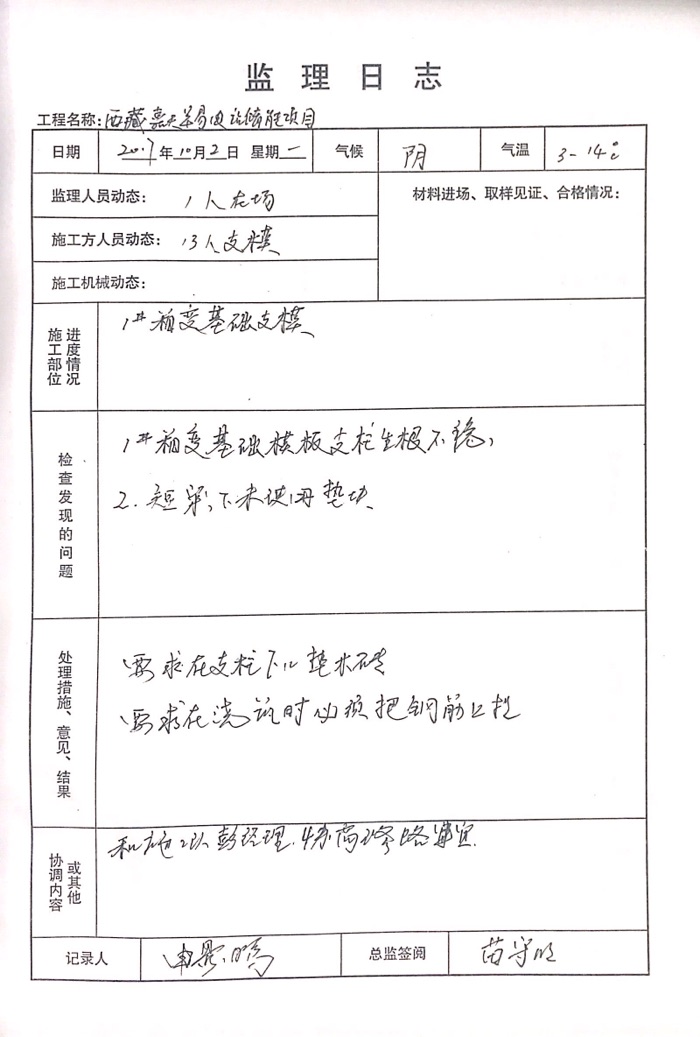 监理日志
工程名称：西藏嘉天羊易电站储能项目
日期 2017年10月2日 星期一 气候 阴 气温 3-14℃
监理人员动态： 1人在场 材料进场、取样见证、合格情况：
施工方人员动态： 13人支模
施工机械动态：
施工部位 进度情况 1#箱变基础支模
检查发现的问题 1#箱变基础模板支柱生根不稳，
2. 短梁下未使用垫块
处理措施、意见、结果 要求在支柱下垫水砖
要求在浇筑时必须把钢筋上提
协调内容 或其他 和施工队彭经理 商 修路事宜.
记录人 申 鸣 总监签阅 苗守明